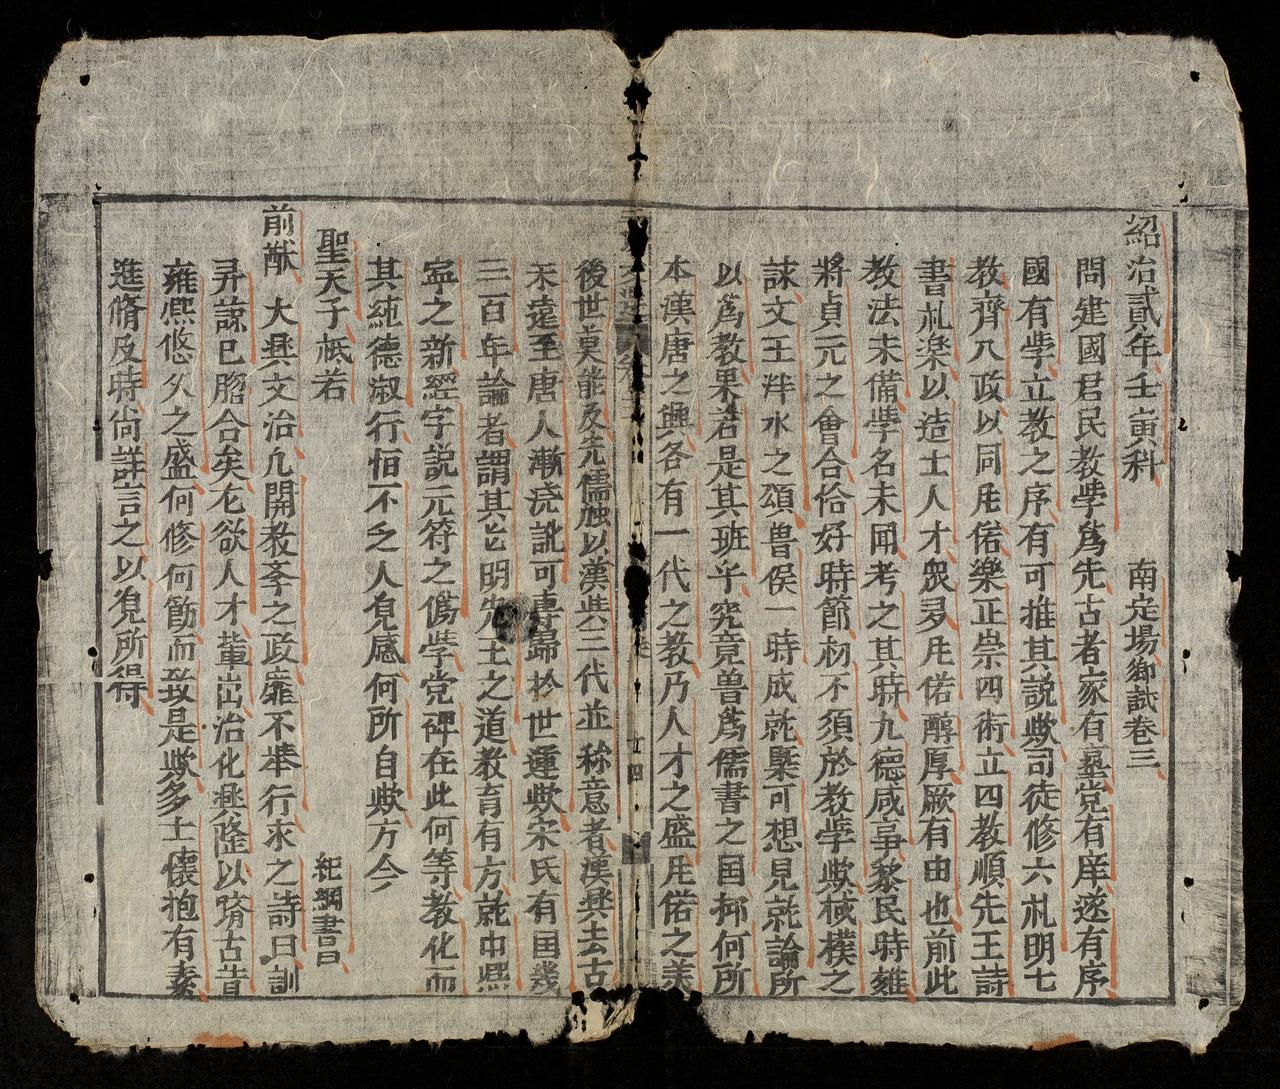 紹治貳年壬寅科 南定場鄉試卷三
問建國君民教學爲先古者家有塾党有庠遂有序
國有學立教之序有可推其説歟司徒修六礼明七
教齊八政以同民俗樂正崇四術立四教順先王詩
書礼楽以造士人才衆多民俗醇厚厥有由也前此
教法未備學名未聞考之其時九德咸事黎民時雍
將貞元之會合恰好時節材不須於教學歟棫樸之
詠文王泮水之頌魯侯一時成就槩可想見就論所
以爲教果若是其班乎究竟魯爲儒書之国抑何所
本漢唐之興各有一代之教乃人才之盛民俗之美
後世莫能及先儒独以漢與三代並称意者漢興去古
未遠至唐人漸澆訛可專歸於世運歟宋氏有国幾
三百年論者謂其能明先王之道教育有方就中熙
寧之新經字説元符之僞學党碑在此何等教化而
其純德淑行恒不乏人見感何所自歟方今
聖天子祗若
前猷大興文治凡開教孝之政靡不舉行求之詩曰訓
紀綱書曰
昇諒已脗合矣尤欲人才輩出治化興隆以隮古昔
雍熙悠久之盛何修何飭而致是歟多士懷抱有素
進脩及時尚詳言之以覌所得
十四